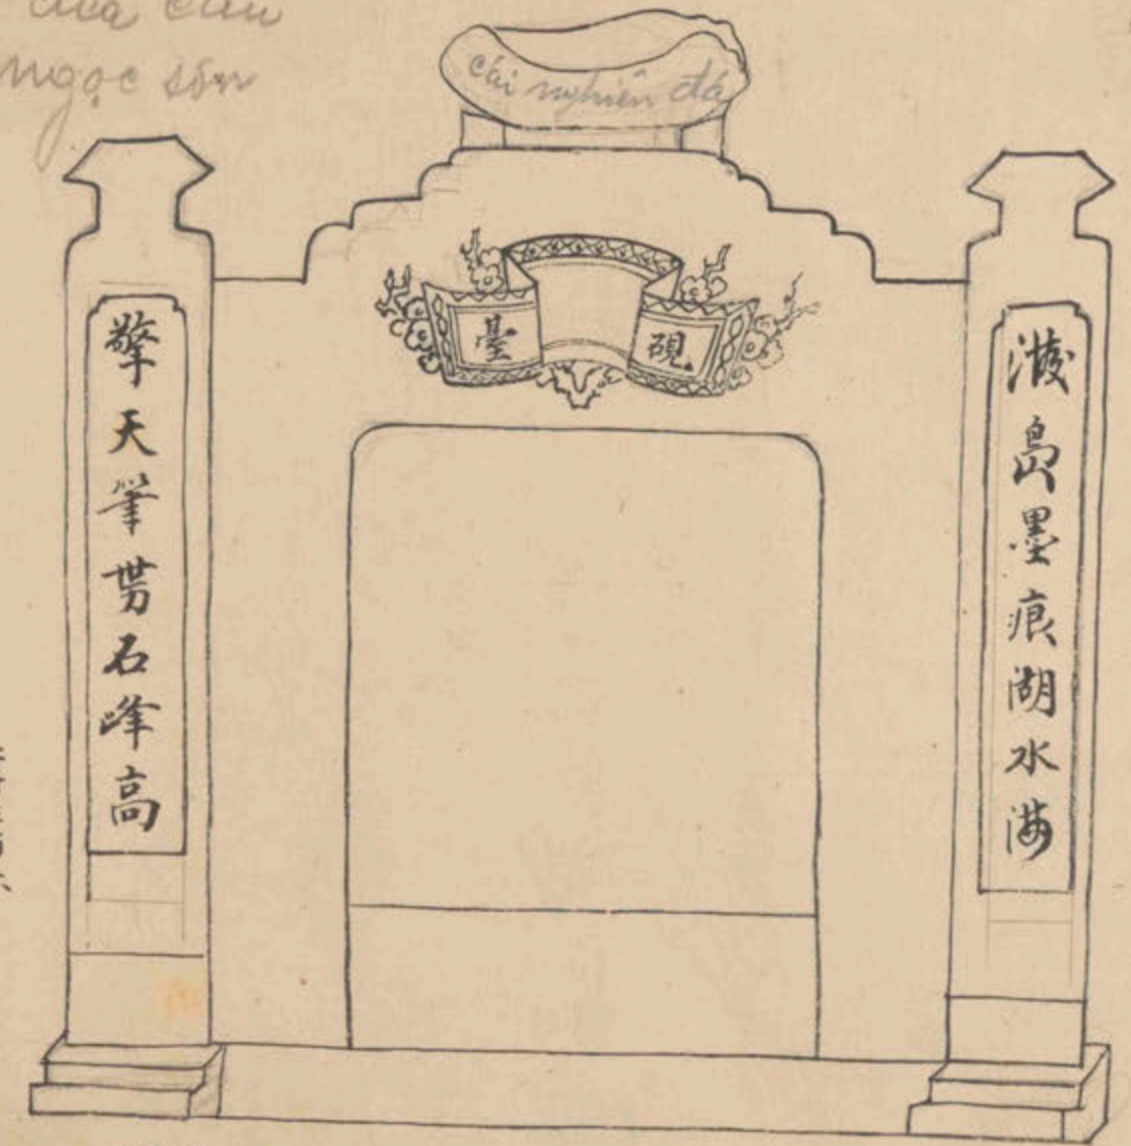 cửa cầu
ngọc sơn
cái nghiên đá
硯臺
潑島墨痕湖水滿
擎天筆勢石峰高